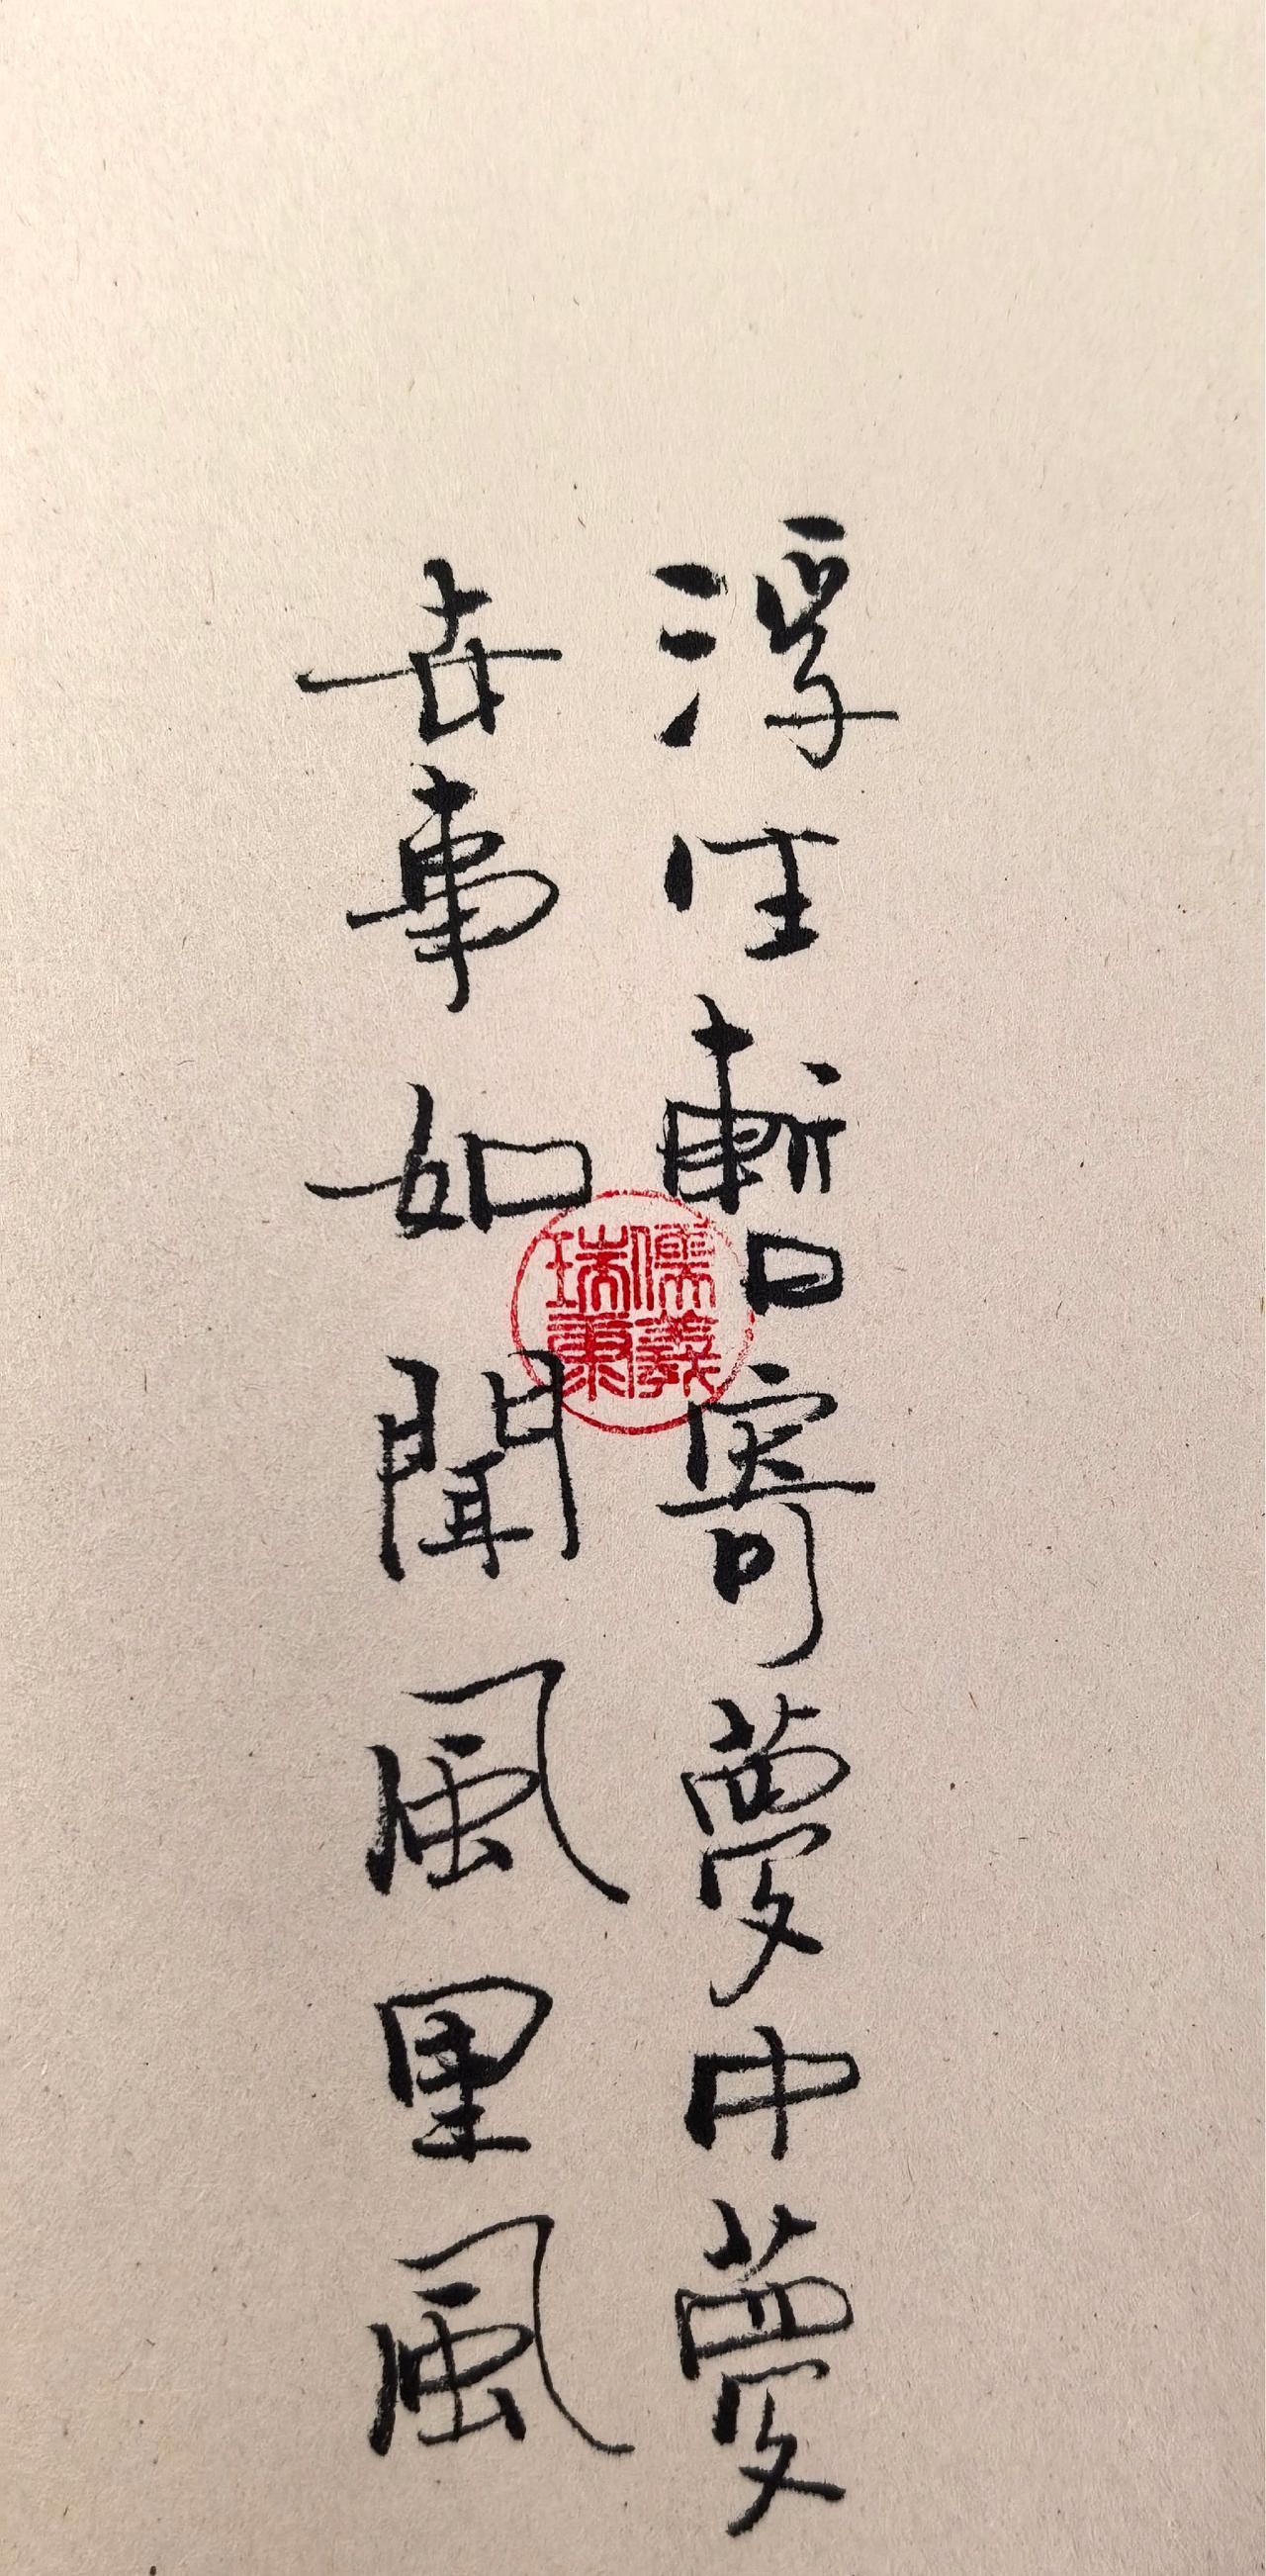 浮生暫寄夢中夢
世事如聞風里風
儒義
瑞秉